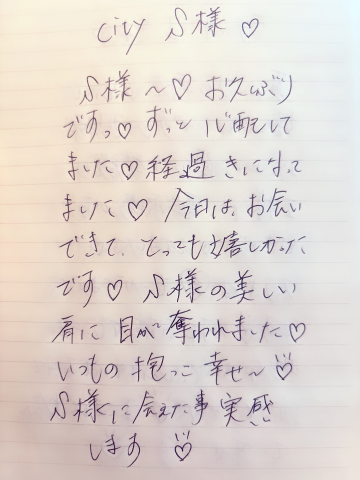 City S様 ♡
S様～♡ お久ぶり
ですっ♡ ずっと 心配して
ました♡ 経過 きになって
ました♡ 今日は、お会い
できて、とっても 嬉しかった
です♡ S様の美しい
肩に 目が 奪われました♡
いつもの 抱っこ 幸せ～♡
S様に会えた事 実感
します ♡